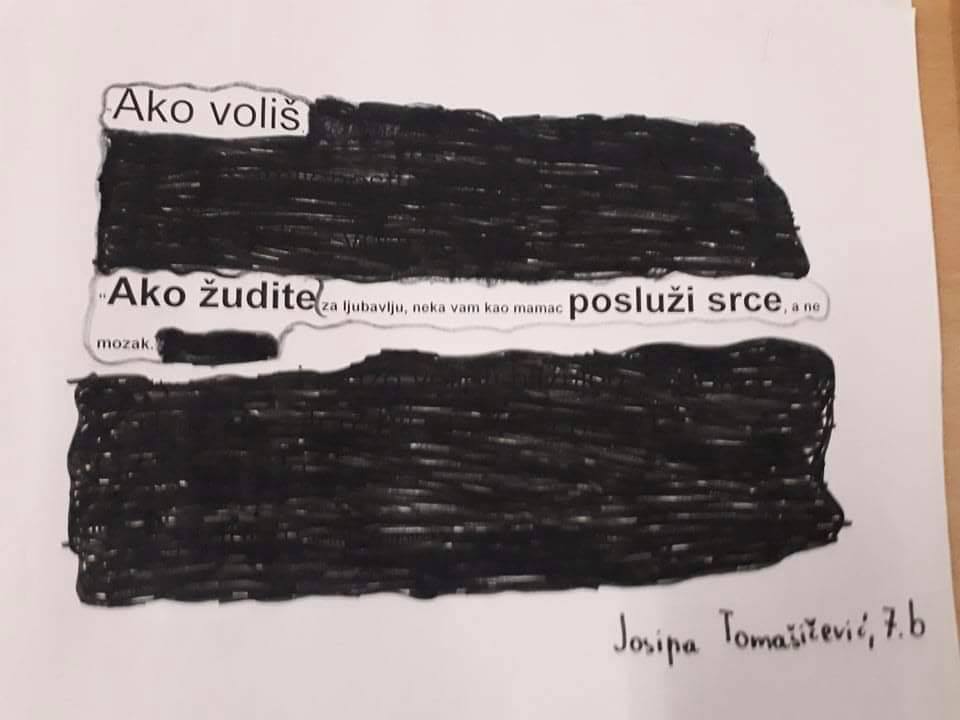 Ako voliš
"Ako žudite za ljubavlju, neka vam kao mamac posluži srce, a ne
mozak.
Josipa Tomašičević, 7.b